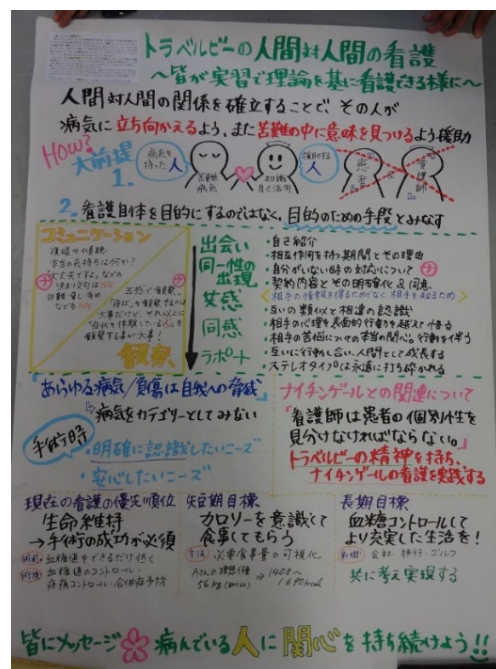 トラベルビーの人間対人間の看護
～皆が実習で理論を基に看護できる様に～
人間対人間の関係を確立することで、その人が
病気に立ち向かえるよう、また苦難の中に意味を見つけるよう援助
How?
大前提
1.
病気を持った人
苦難
病気
知識
自己活用
援助する人
患者
看護師
2. 看護自体を目的にするのではなく、目的のための手段とみなす
コミュニケーション
本当の気持ちは何か?
"大丈夫ですよ"などの
観察
出会い
同一性の出現
共感
同感
ラポート
・自己紹介
・相互作用を持つ期間とその理由
・自分がいない時の対応について
・契約内容とその明確化&同意
相手の情報を得るためでなく、相手を知るため
・互いの類似と相違の認識
・相手の心理を表面的行動を越えて悟る
・相手の苦悩についての本当の関心、行動を伴う
・互いに行動し合い、人間として成長する
・ステレオタイプは永遠に打ち砕かれる
「あらゆる病気/負傷は自我への脅威」
病気をカテゴリーとしてみない
手術時
・明確に認識したいニーズ
・安心したいニーズ
ナイチンゲールとの関連について
「看護師は患者の個別性を
見分けなければならない。」
トラベルビーの精神を持ち、
ナイチンゲールの看護を実践する
現在の看護の優先順位
生命維持
→手術の成功が必須
術前:血糖値をできるだけ低く
術後:血糖値のコントロール・
疼痛コントロール・合併症予防
短期目標
カロリーを意識して
食事してもらう
方法:必要食事量の可視化
Aさんの理想体重
56kg
⇒1400～
1680kcal
長期目標
血糖コントロールして
より充実した生活を!
会社・旅行・ゴルフ
共に考え実現する
皆にメッセージ 病んでいる人に関心を持ち続けよう!!